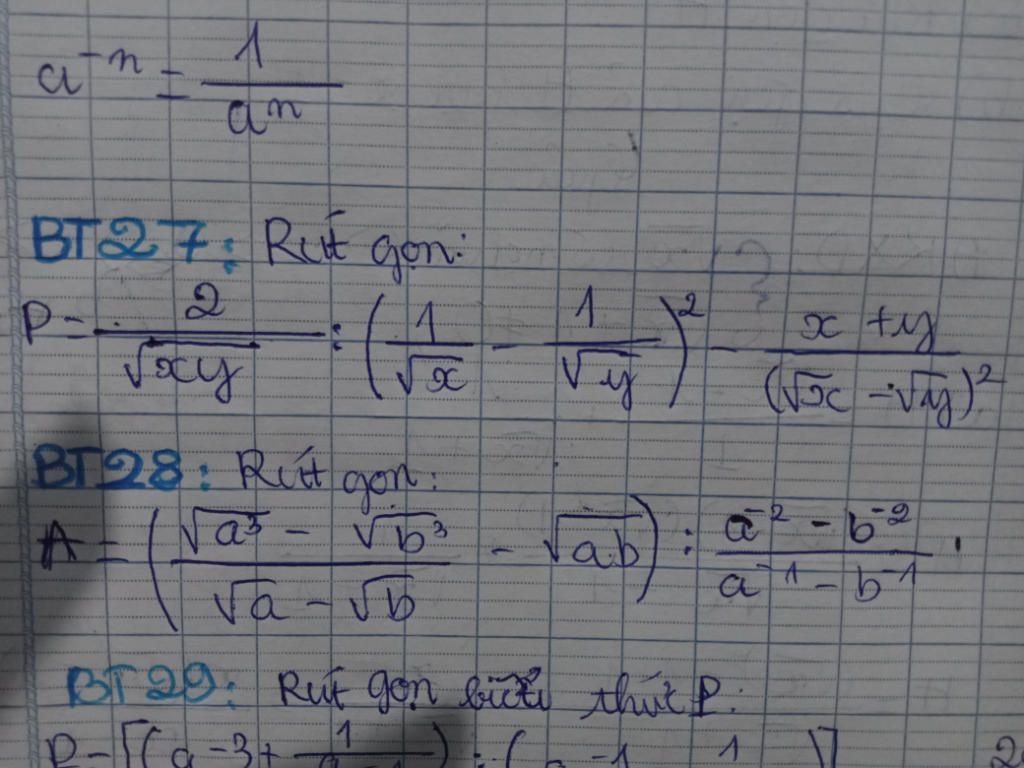 a⁻ⁿ = 1/aⁿ
BT27: Rút gọn:
P = 2/√xy : (1/√x - 1/√y)² - (x + y)/(√x - √y)²
BT28: Rút gọn:
A = ((√a³ - √b³)/(√a - √b) - √ab) : (a⁻² - b⁻²)/(a⁻¹ - b⁻¹).
BT29: Rút gọn biểu thức P:
P = [(a - 3 + 1/(a - 1)) : (a - 1 1)]